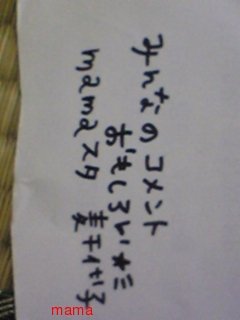 みんなのコメント
おもしろい★ミ
mamaスタ
mama